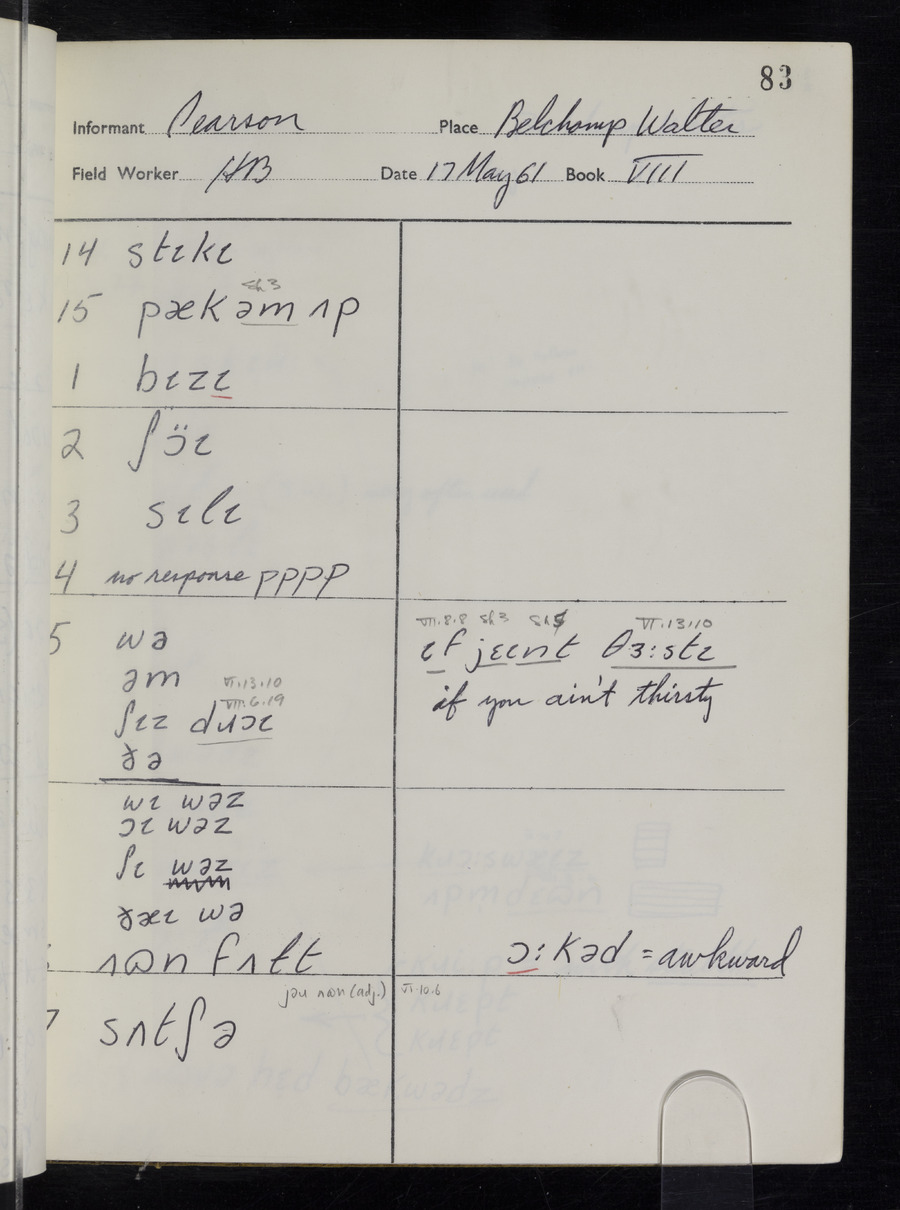 83
Informant Pearson Place Belchamp Walter
Field Worker HB Date 17 May 61 Book VIII
14 stɪkɪ
sh3
15 pækəm ʌp
1 bɪzɪ
2 ʃɔ̈ɪ
3 sɪlɪ
4 no response pppp
VIII.8.8 sh3 sh5 VI.13.10
5 wə ɪf jɛɪnt θɜ:stɪ
əm if you ain't thirsty
VI.13.10
VIII.6.19
ʃɪz duɔɪ
ðə
wɪ wəz
ɔɪ wəz
ʃɪ wəz
ðæɪ wə
ʌɷn fʌɫt ɔ:kəd = awkward
jəu ʌɷn (adj.) VI.10.6
7 sʌtʃə